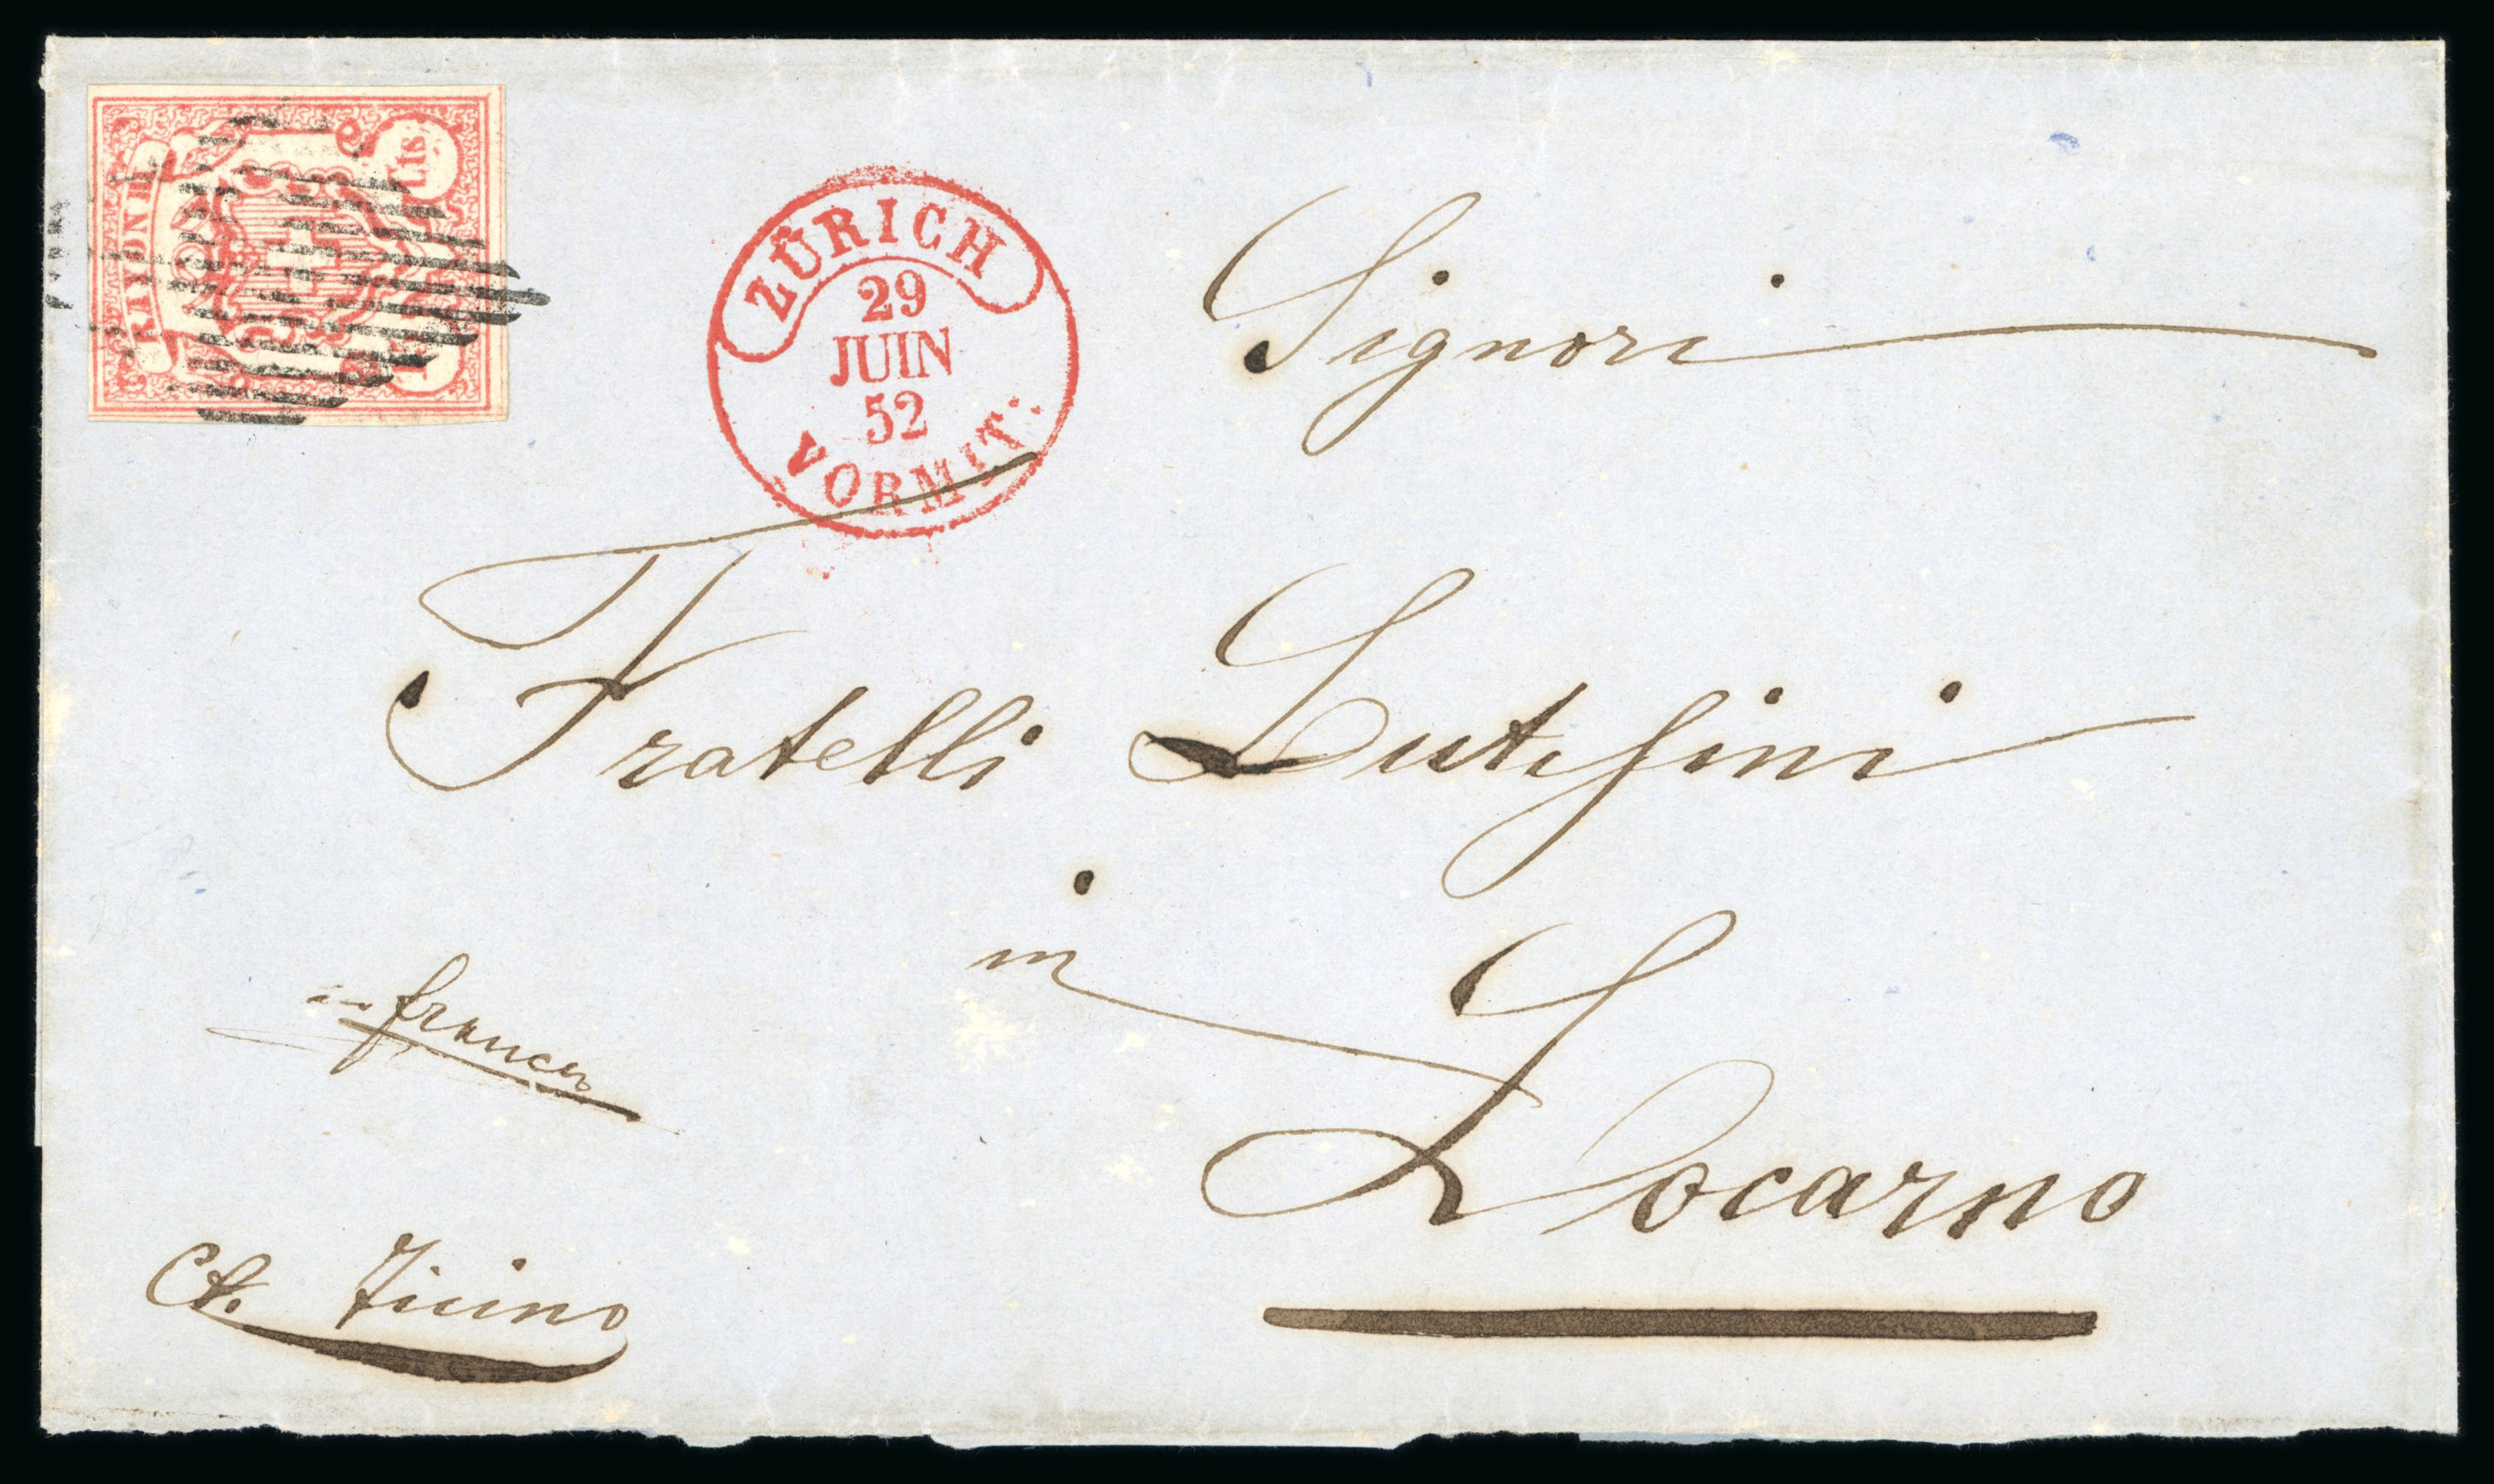 RAYON III.
Cts
ZÜRICH
29
JUIN
52
VORMIT:
Signori
Fratelli
in
Locarno
franco
Ct. Ticino